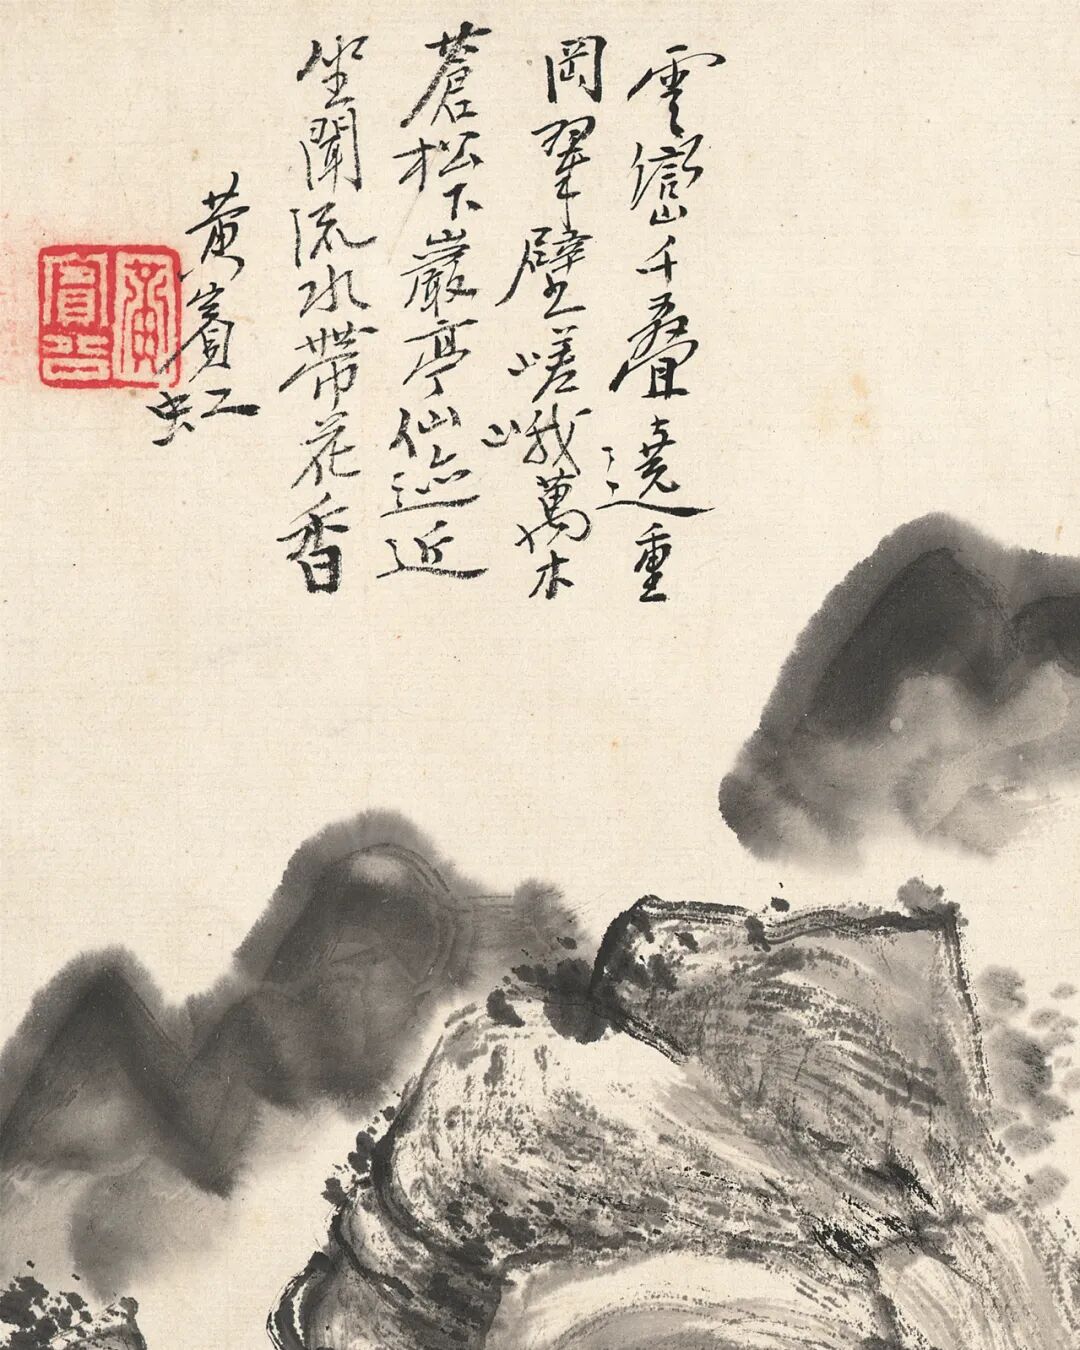 雲嶽千疊遶重
岡翠壁嵯峨萬木
蒼松下巖亭仙迹近
坐聞流水帶花香
黄賓虹
黃賓